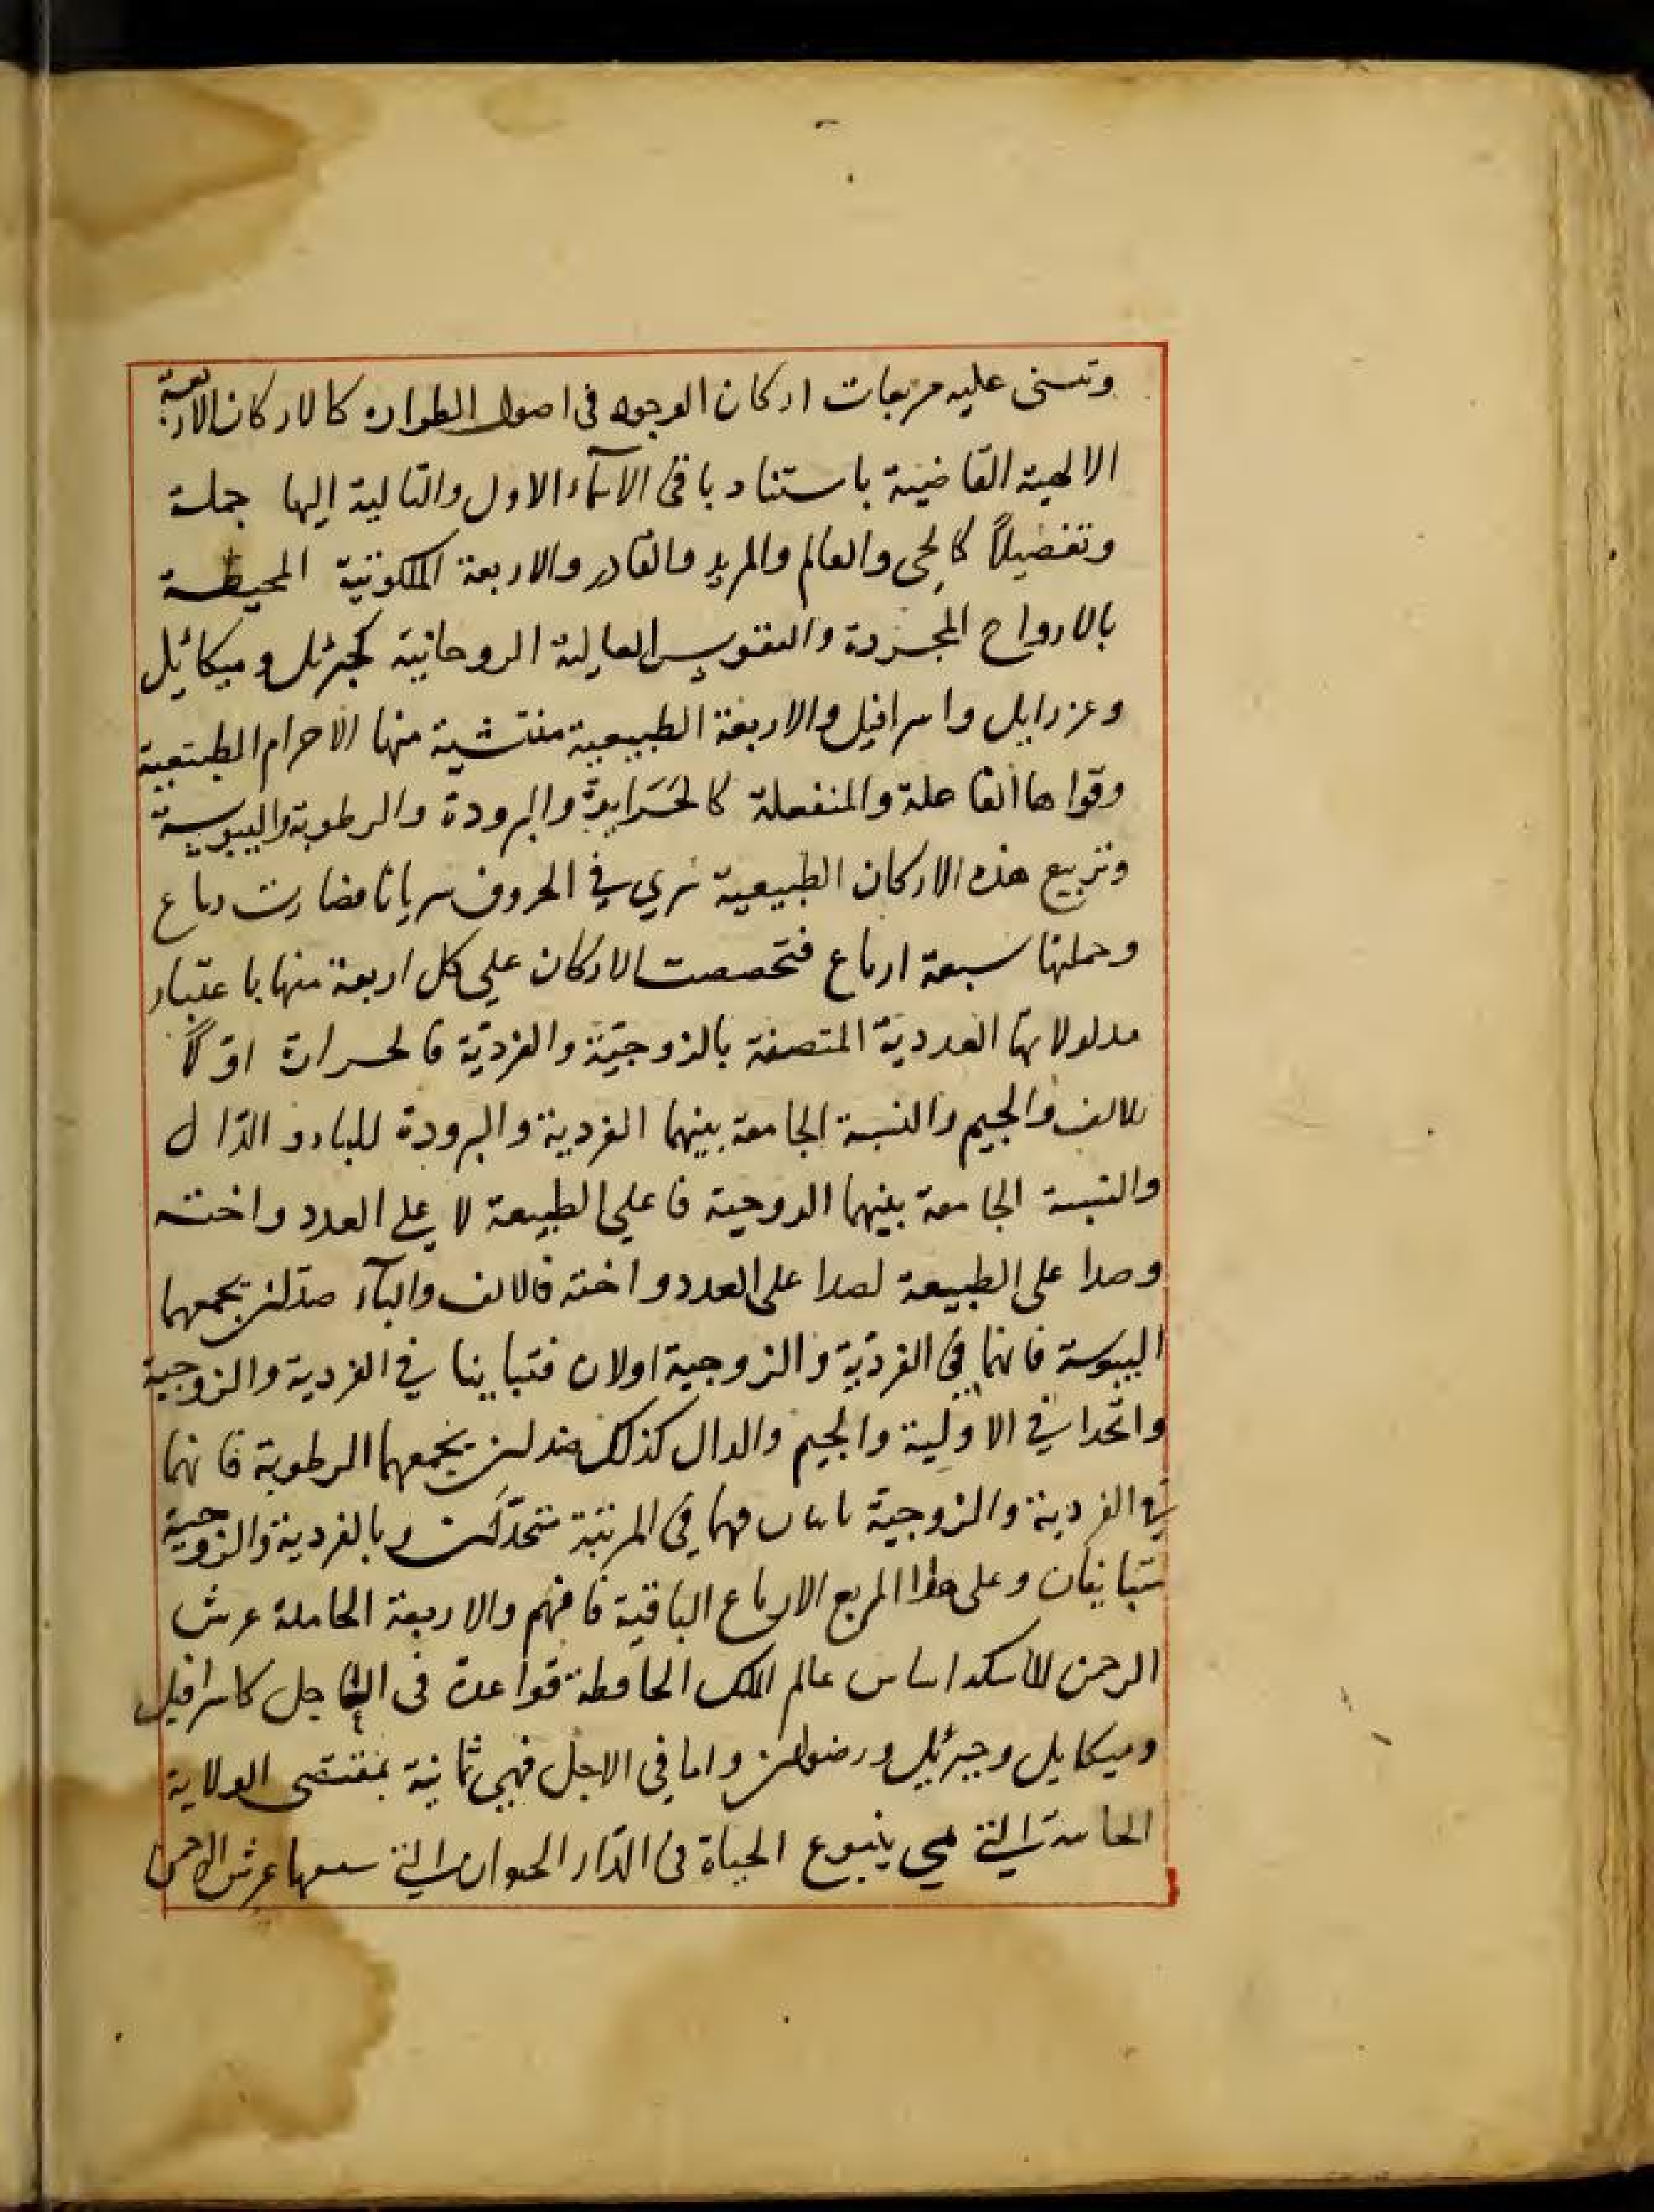 وتبنى عليه مربعات اركان الوجود فى اصول اطواره كالاركان الاربعة
الالهية القاضية باستناد باقى الاسمآء الاول والتالية اليها جملة
وتفصيلاً كالحى والعالم والمريد والقادر والاربعة الملكوتية المحيطة
بالارواح المجردة والنفوس العالية الروحانية كجبرئل وميكائيل
وعزرايل واسرافيل والاربعة الطبيعية منتشية منها الاجرام الطبيعية
وقواها الفاعلة والمنفعلة كالحرارة والبرودة والرطوبة واليبوسة
وتربيع هذه الاركان الطبيعية سري في الحروف سريانا فصارت رباع
وجملتها سبعة ارباع فتحصصت الاركان علي كل اربعة منها باعتبار
مدلولاتها العددية المتصفة بالزوجيّة والفرديّة فالحرارة اوّلاً
للالف والجيم والنسبة الجامعة بينهما الفردية والبرودة للباء و الدّال
والنسبة الجامعة بينهما الزوجية فاعلي الطبيعة لا على العدد واخته
وصدا على الطبيعة لصدا على العدد و اخته فالالف والبآء ضدّان يجمعهما
اليبوسة فانهما في الفرديّة والزوجية اولان فتباينا في الفردية والزوجية
واتحدا في الاوّلية والجيم والدال كذلك ضدان يجمعهما الرطوبة فانهما
في الفردية والزوجية ثانيان فهما في المرتبة متحدان وبالفردية والزوجية
متباينان وعلى هذا المربع الارباع الباقية فافهم والاربعة الحاملة عرش
الرحمن الماسكة اساس عالم الملك الحافظة قواعده فى العاجل كاسرافيل
وميكايل وجبرئيل ورضوان واما في الاجل فهي ثمانية بمقتضى الولاية
التي هي ينبوع الحياة فى الدّار الحيوان التي عرش الرحمن